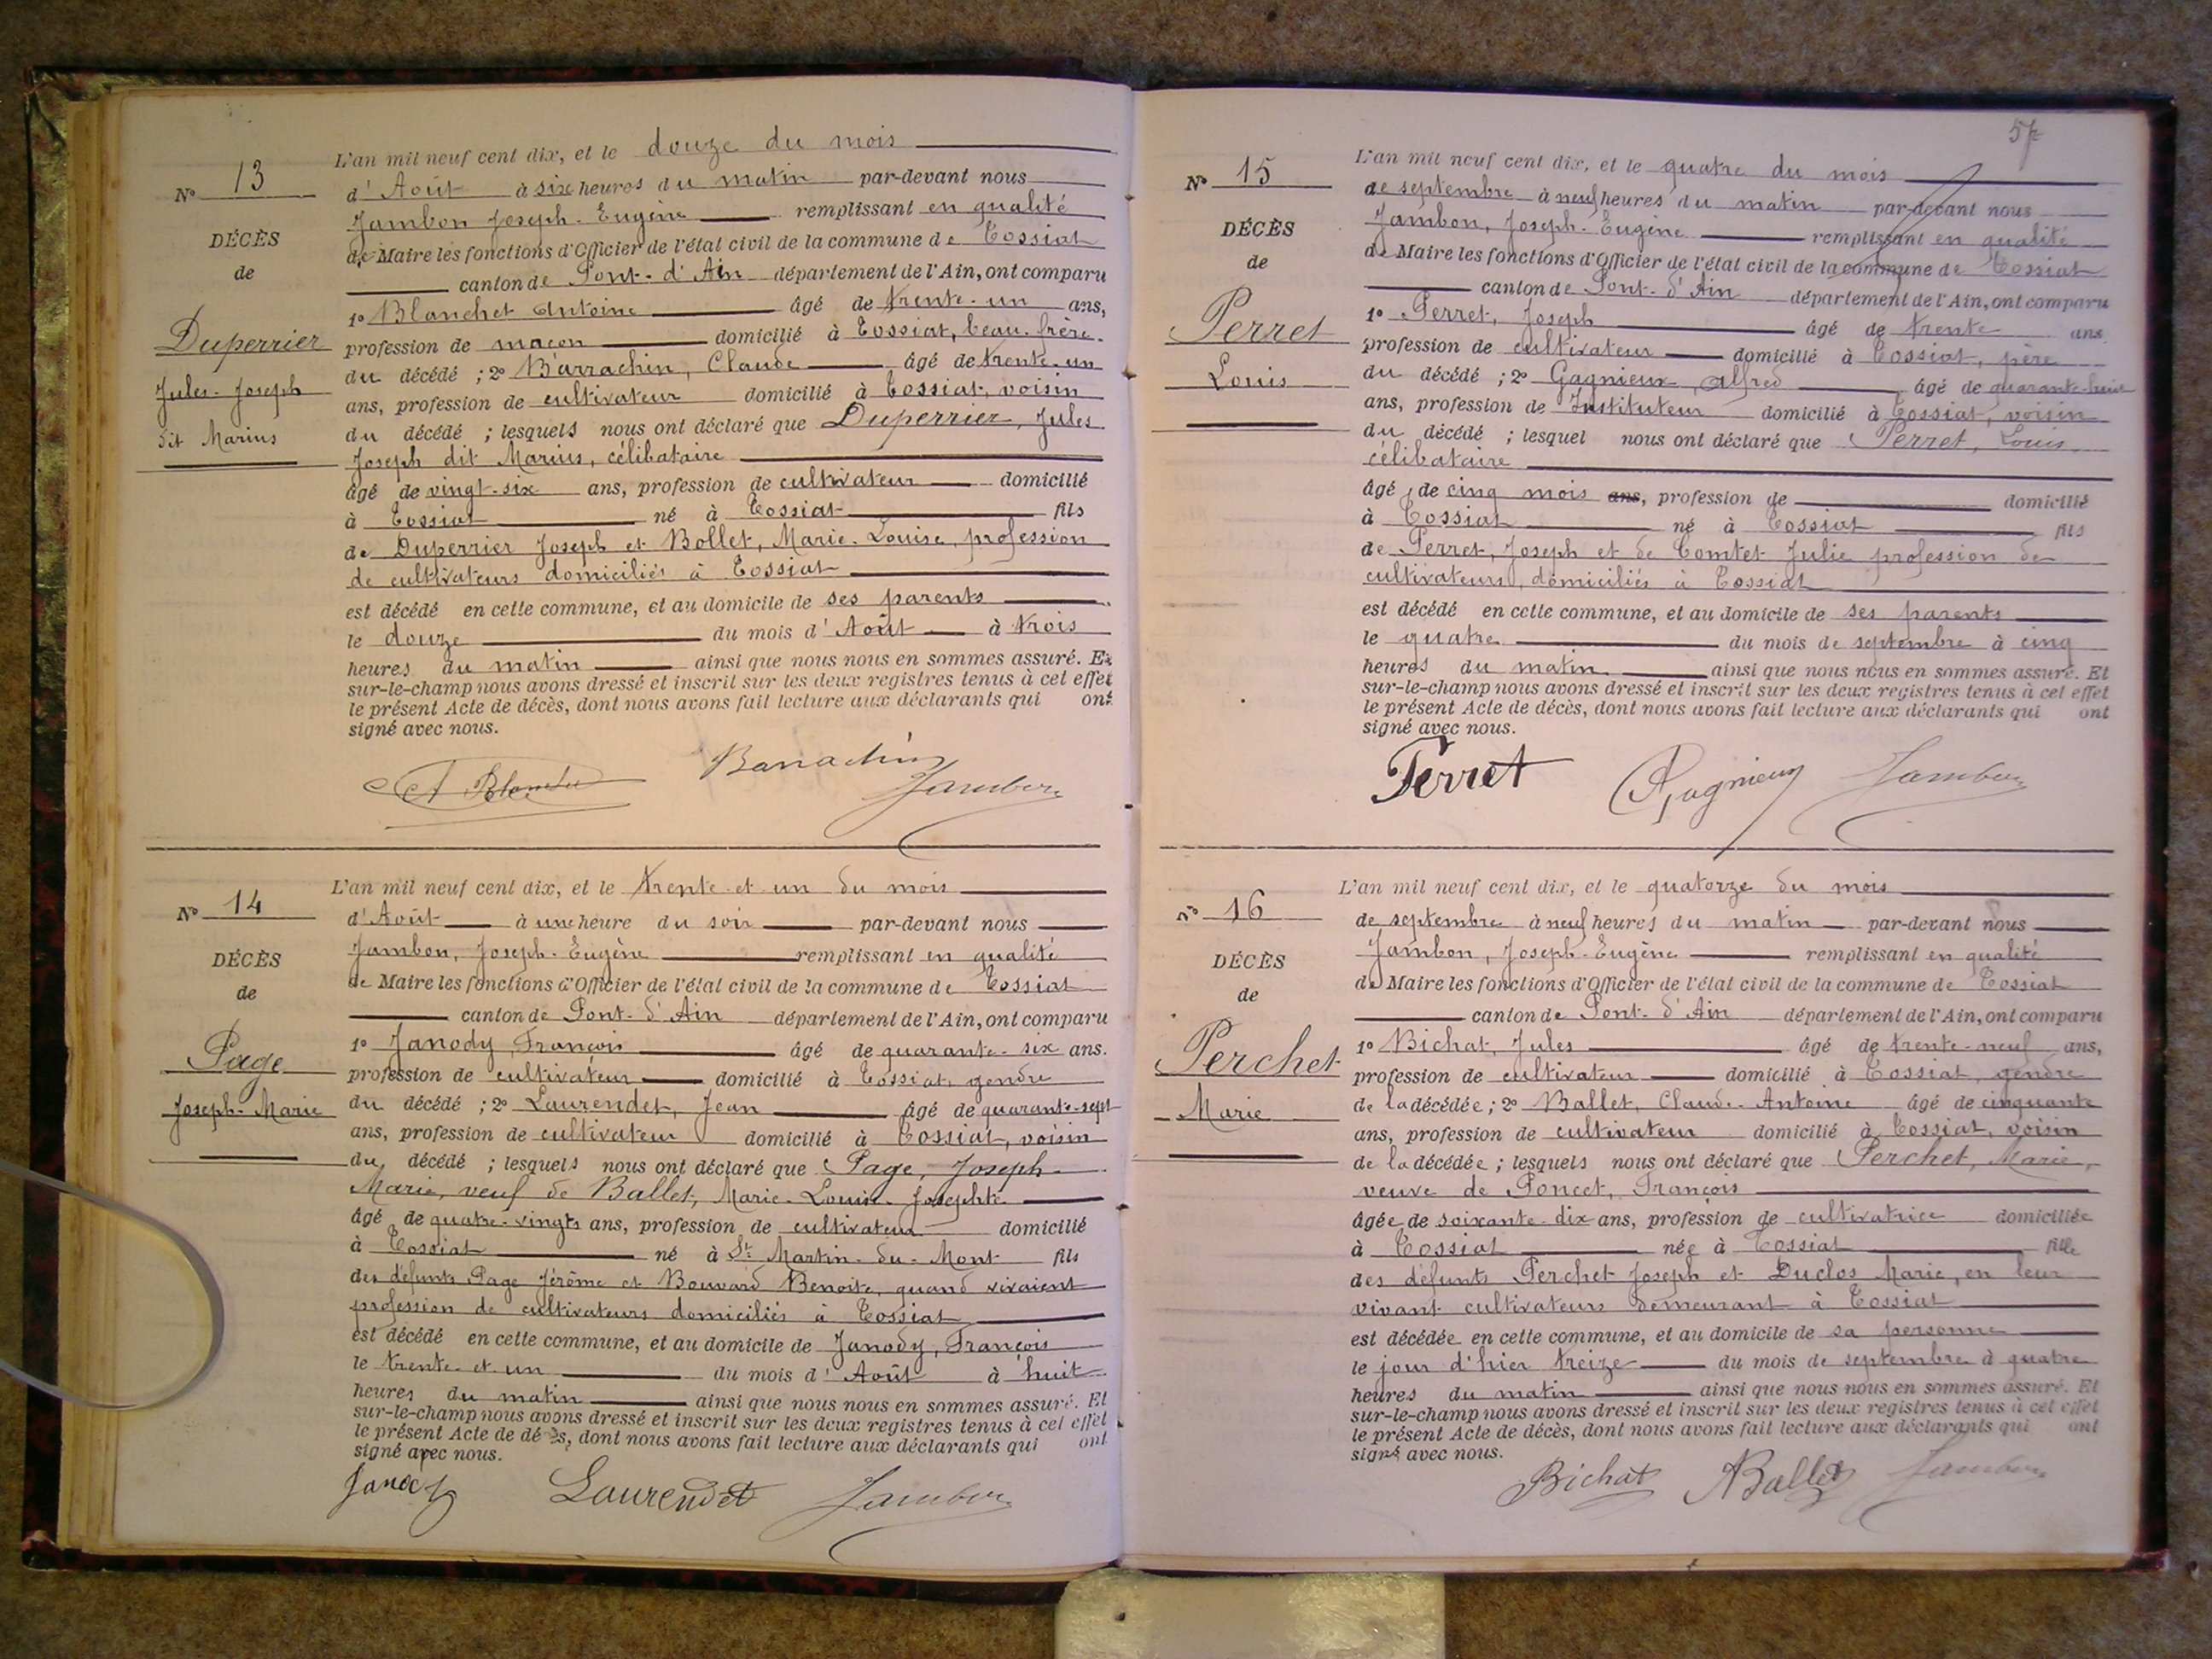 N° 13
DÉCÈS
de
Duperrier
Jules-Joseph
dit Marius
L'an mil neuf cent dix, et le douze du mois
d'Août à six heures du matin par-devant nous
Jambon Joseph-Eugène remplissant en qualité
de Maire les fonctions d'Officier de l'état civil de la commune de Tossiat
canton de Pont-d'Ain département de l'Ain, ont comparu
1° Blanchet Antoine âgé de trente-un ans,
profession de maçon domicilié à Tossiat, beau-frère
du décédé ; 2° Barrachin, Claude âgé de trente-un
ans, profession de cultivateur domicilié à Tossiat, voisin
du décédé ; lesquels nous ont déclaré que Duperrier, Jules
Joseph dit Marius, célibataire
âgé de vingt-six ans, profession de cultivateur domicilié
à Tossiat né à Tossiat fils
de Duperrier Joseph et Bollet, Marie-Louise, profession
de cultivateurs domiciliés à Tossiat
est décédé en cette commune, et au domicile de ses parents
le douze du mois d'Août à trois
heures du matin ainsi que nous nous en sommes assuré. Et
sur-le-champ nous avons dressé et inscrit sur les deux registres tenus à cet effet
le présent Acte de décès, dont nous avons fait lecture aux déclarants qui ont
signé avec nous.
A Blanchet Barrachin Jambon
N° 14
DÉCÈS
de
Page
Joseph-Marie
L'an mil neuf cent dix, et le trente et un du mois
d'Août à une heure du soir par-devant nous
Jambon, Joseph-Eugène remplissant en qualité
de Maire les fonctions d'Officier de l'état civil de la commune de Tossiat
canton de Pont-d'Ain département de l'Ain, ont comparu
1° Janody, François âgé de quarante-six ans.
profession de cultivateur domicilié à Tossiat, gendre
du décédé ; 2° Laurendet, Jean âgé de quarante-sept
ans, profession de cultivateur domicilié à Tossiat, voisin
du décédé ; lesquels nous ont déclaré que Page, Joseph-
Marie, veuf de Ballet, Marie-Louise-Josephte
âgé de quatre-vingts ans, profession de cultivateur domicilié
à Tossiat né à St Martin-du-Mont fils
des défunts Page Jérôme et Bouvard Benoite, quand vivaient
profession de cultivateurs domiciliés à Tossiat
est décédé en cette commune, et au domicile de Janody, François
le trente et un du mois d'Août à huit
heures du matin ainsi que nous nous en sommes assuré. Et
sur-le-champ nous avons dressé et inscrit sur les deux registres tenus à cet effet
le présent Acte de décès, dont nous avons fait lecture aux déclarants qui ont
signé avec nous.
Janody Laurendet Jambon
57
N° 15
DÉCÈS
de
Perret
Louis
L'an mil neuf cent dix, et le quatre du mois
de septembre à neuf heures du matin par-devant nous
Jambon, Joseph-Eugène remplissant en qualité
de Maire les fonctions d'Officier de l'état civil de la commune de Tossiat
canton de Pont-d'Ain département de l'Ain, ont comparu
1° Perret, Joseph âgé de trente ans
profession de cultivateur domicilié à Tossiat, père
du décédé ; 2° Gagnieux, Alfred âgé de quarante-huit
ans, profession de Instituteur domicilié à Tossiat, voisin
du décédé ; lesquel nous ont déclaré que Perret, Louis
célibataire
âgé de cinq mois ans, profession de domicilié
à Tossiat né à Tossiat fils
de Perret, Joseph et de Comtet Julie profession de
cultivateurs, domiciliés à Tossiat
est décédé en cette commune, et au domicile de ses parents
le quatre du mois de septembre à cinq
heures du matin ainsi que nous nous en sommes assuré. Et
sur-le-champ nous avons dressé et inscrit sur les deux registres tenus à cet effet
le présent Acte de décès, dont nous avons fait lecture aux déclarants qui ont
signé avec nous.
Perret A Gagnieux Jambon
N° 16
DÉCÈS
de
Perchet
Marie
L'an mil neuf cent dix, et le quatorze du mois
de septembre à neuf heures du matin par-devant nous
Jambon, Joseph-Eugène remplissant en qualité
de Maire les fonctions d'Officier de l'état civil de la commune de Tossiat
canton de Pont-d'Ain département de l'Ain, ont comparu
1° Bichat, Jules âgé de trente-neuf ans,
profession de cultivateur domicilié à Tossiat, gendre
de la décédée ; 2° Ballet, Claude-Antoine âgé de cinquante
ans, profession de cultivateur domicilié à Tossiat, voisin
de la décédée ; lesquels nous ont déclaré que Perchet, Marie,
veuve de Poncet, François
âgée de soixante-dix ans, profession de cultivatrice domiciliée
à Tossiat née à Tossiat fille
des défunts Perchet Joseph et Duclos Marie, en leur
vivant cultivateurs demeurant à Tossiat
est décédée en cette commune, et au domicile de sa personne
le jour d'hier treize du mois de septembre à quatre
heures du matin ainsi que nous nous en sommes assuré. Et
sur-le-champ nous avons dressé et inscrit sur les deux registres tenus à cet effet
le présent Acte de décès, dont nous avons fait lecture aux déclarants qui ont
signé avec nous.
Bichat Ballet Jambon